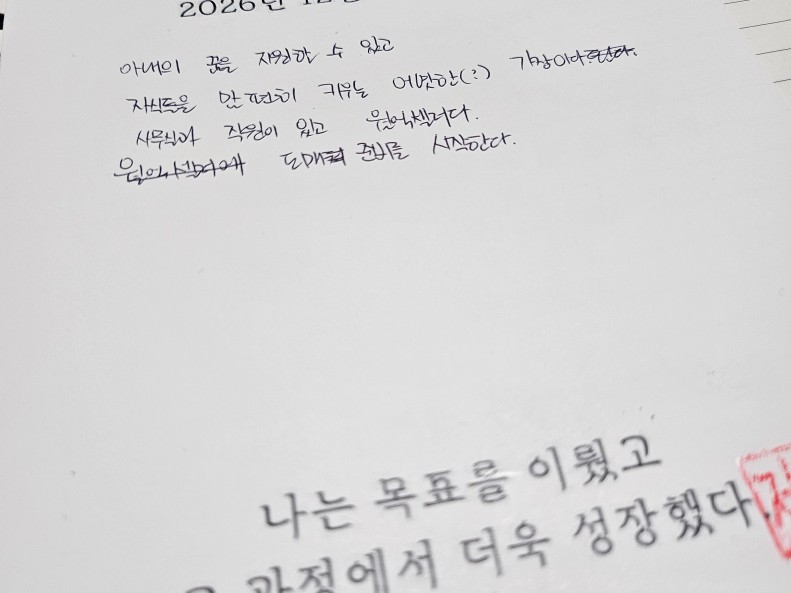 2026년 12
아내의 꿈을 지원할 수 있고
자식들을 맘 편히 키우는 어엿한(?) 가장이다
사무실과 직원이 있고 월억셀러다.
도매 준비를 시작한다.
나는 목표를 이뤘고
과정에서 더욱 성장했다.